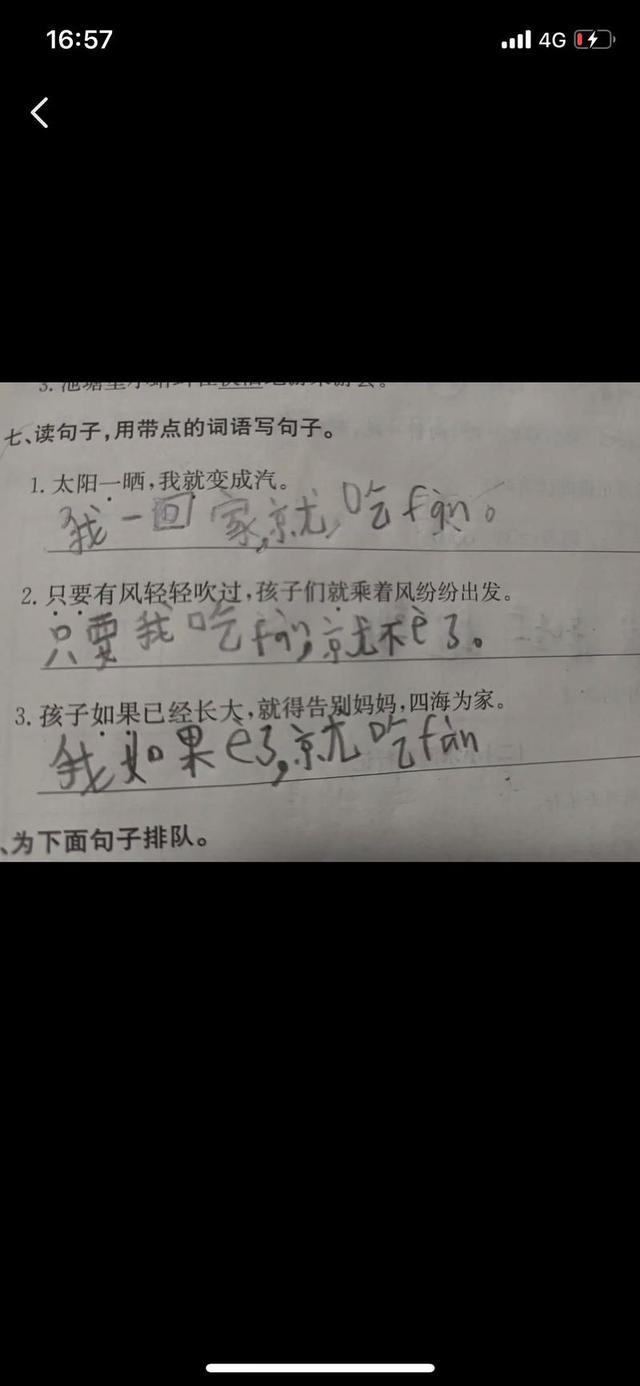 16:57
4G
七、读句子，用带点的词语写句子。
1. 太阳一晒，我就变成汽。
我一回家，就吃fàn。
2. 只要有风轻轻吹过，孩子们就乘着风纷纷出发。
只要我吃fàn，就不è了。
3. 孩子如果已经长大，就得告别妈妈，四海为家。
我如果è了，就吃fàn
、为下面句子排队。